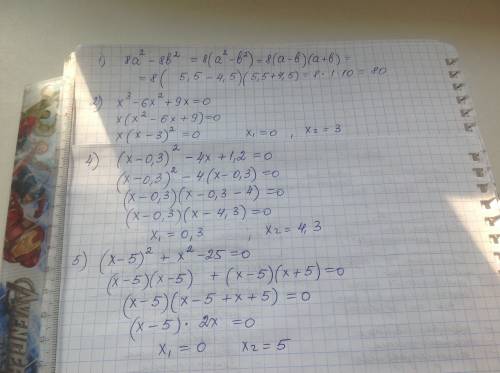 1) 8a² - 8b² = 8(a² - b²) = 8(a-b)(a+b) =
= 8( 5,5 - 4,5)(5,5+4,5) = 8 · 1 · 10 = 80
2) x³ - 6x² + 9x = 0
x(x² - 6x + 9) = 0
x(x-3)² = 0 x₁ = 0 , x₂ = 3
4) (x-0,3)² - 4x + 1,2 = 0
(x-0,3)² - 4(x-0,3) = 0
(x-0,3)(x-0,3-4) = 0
(x-0,3)(x-4,3) = 0
x₁ = 0,3 , x₂ = 4,3
5) (x-5)² + x² - 25 = 0
(x-5)(x-5) + (x-5)(x+5) = 0
(x-5)(x-5+x+5) = 0
(x-5) · 2x = 0
x₁ = 0 x₂ = 5
AVENGERS